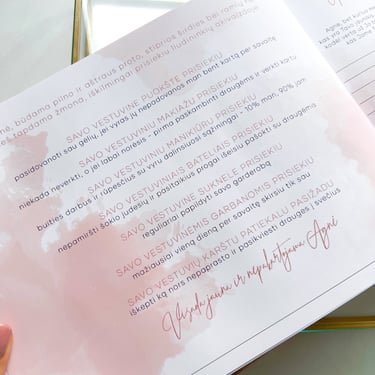 nė, būdama pilno ir aštraus proto, stiprios širdies bei ramių ne
tapdama žmona, iškilmingai prisiekiu liudininkių akivaizdoje
SAVO VESTUVINE PUOKŠTE PRISIEKIU
pasidovanoti sau gėlių, jei vyras jų nepadovanos man bent kartą per savaitę
SAVO VESTUVINIU MAKIAŽU PRISIEKIU
niekada neverkti, o jei labai norėsis - pirma paskambinti draugėms ir verkti kartu
SAVO VESTUVINIU MANIKIŪRU PRISIEKIU
buities darbus ir rūpesčius su vyru dalinsiuosi sąžiningai - 10% man, 90% jam
SAVO VESTUVINIAIS BATELIAIS PRISIEKIU
nepamiršti šokio judesių ir pasitaikius progai išeisiu pašokti su draugėmis
SAVO VESTUVINE SUKNELE PRISIEKIU
reguliariai papildyti savo garderobą
SAVO VESTUVINĖMIS GARBANOMIS PRISIEKIU
mažiausiai vieną dieną per savaitę skirsiu tik sau
SAVO VESTUVIŲ KARŠTU PATIEKALU PASIŽADU
iškepti ką nors nepaprasto ir pasikviesti drauges į svečius
Visada jauna ir nepakartojama Agnė